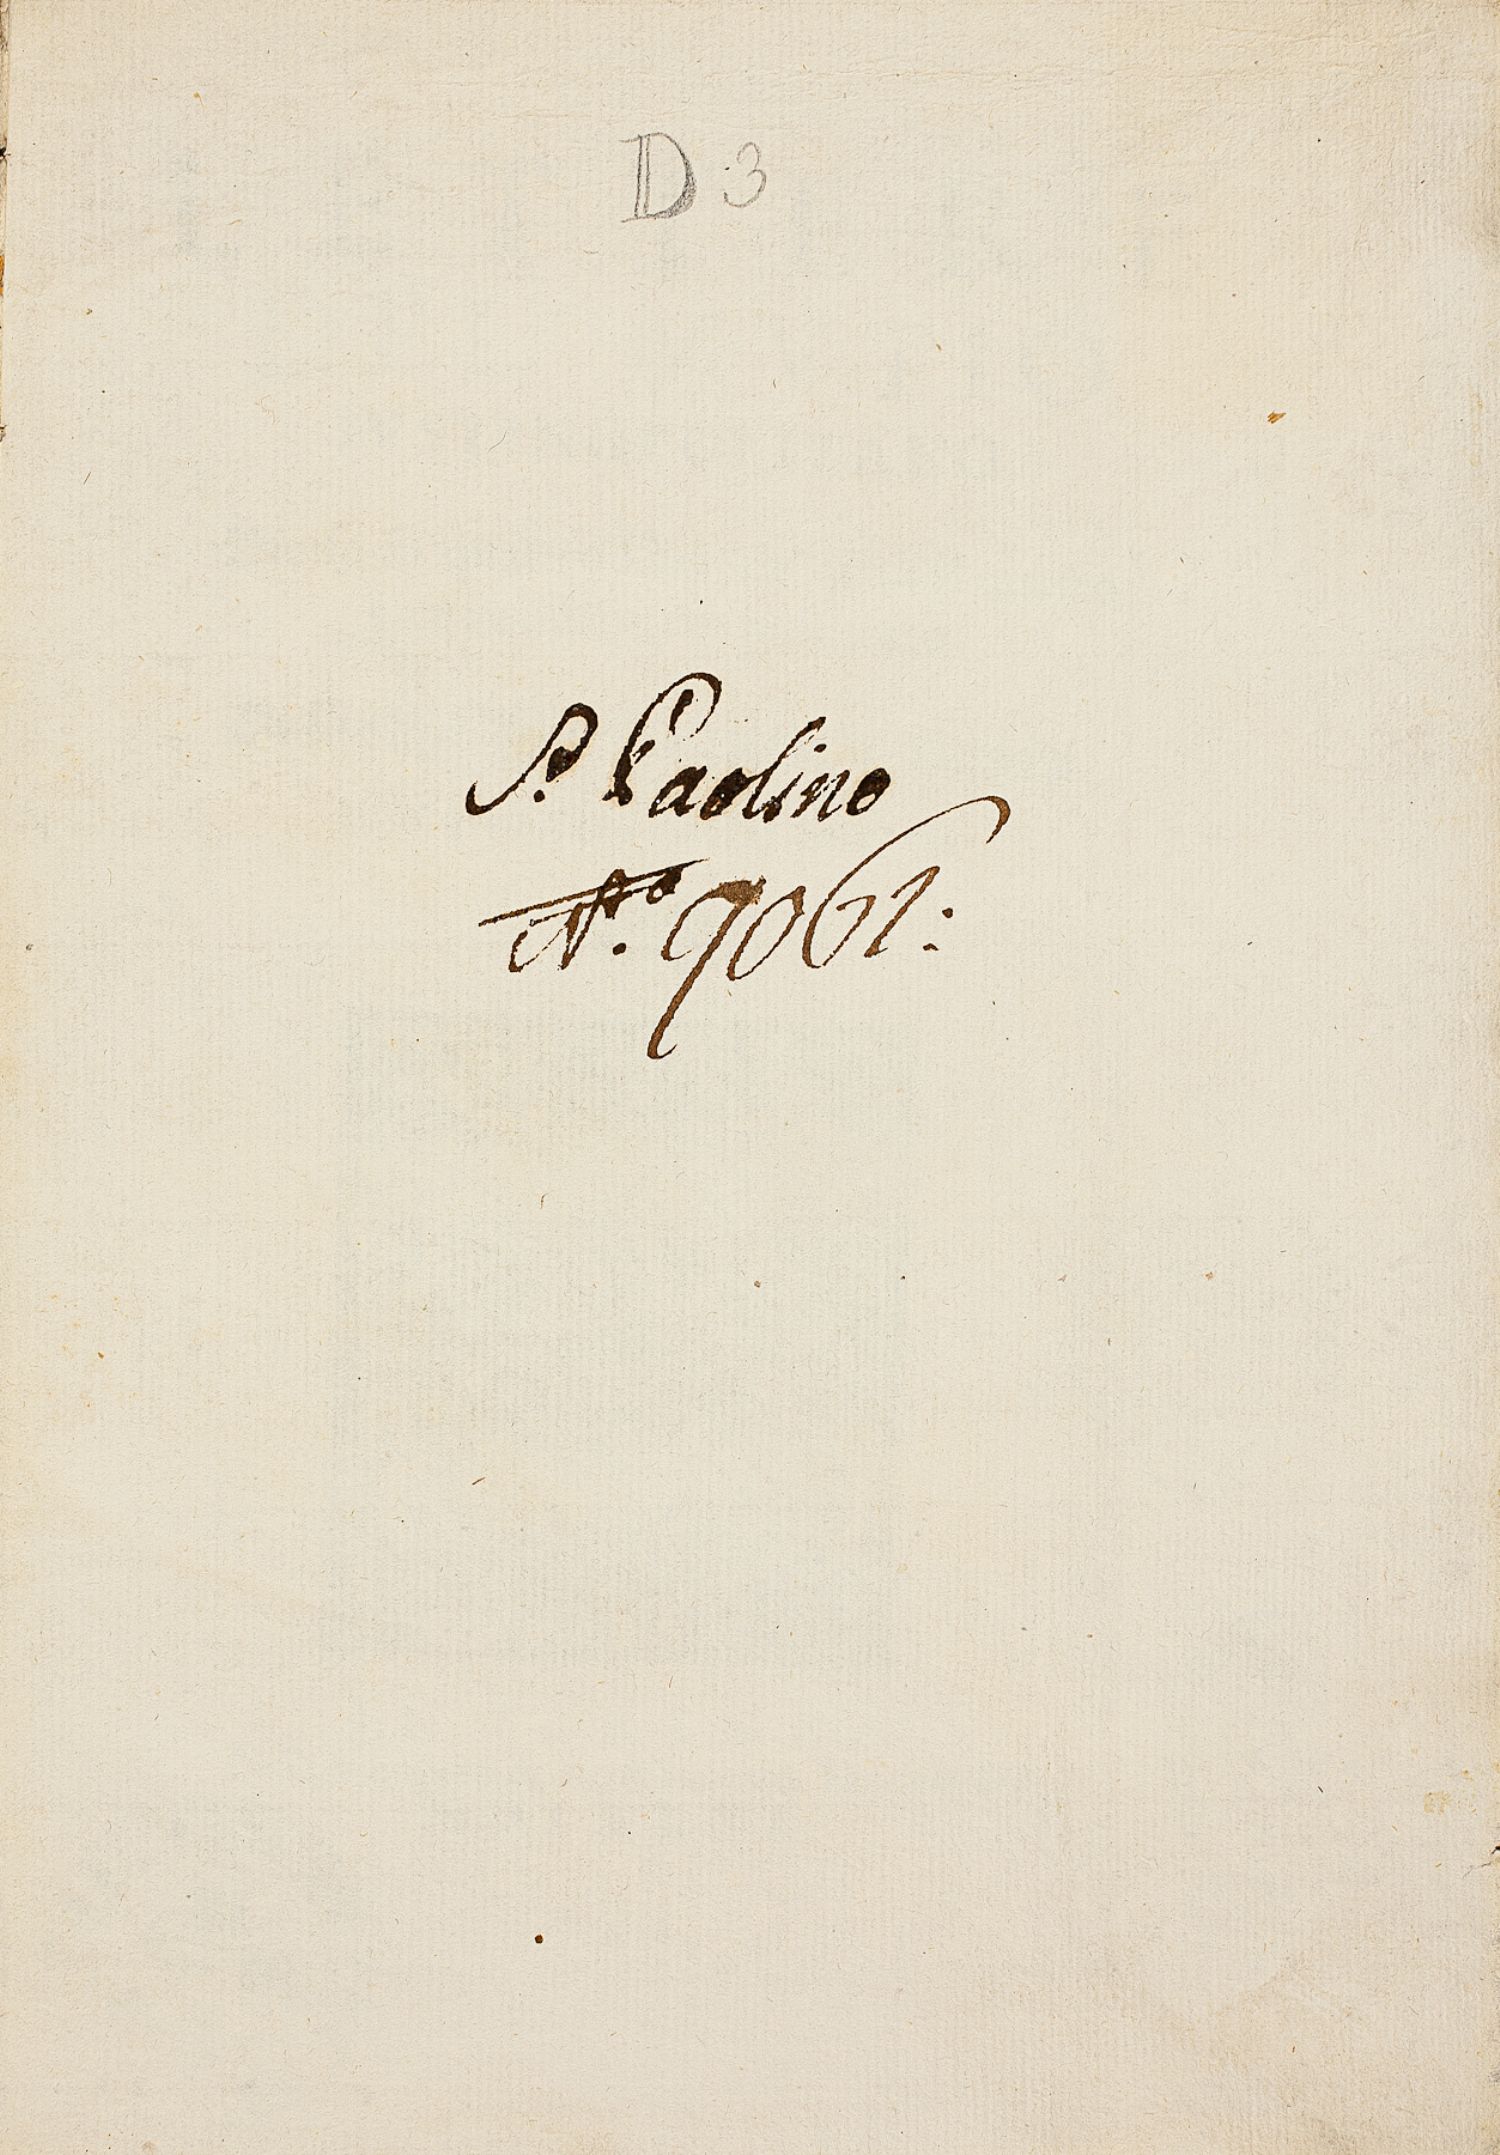 D 3
S. Paolino
N.º 9061: